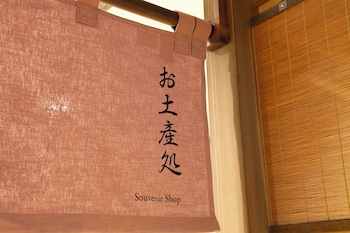 お土産処
Souvenir Shop